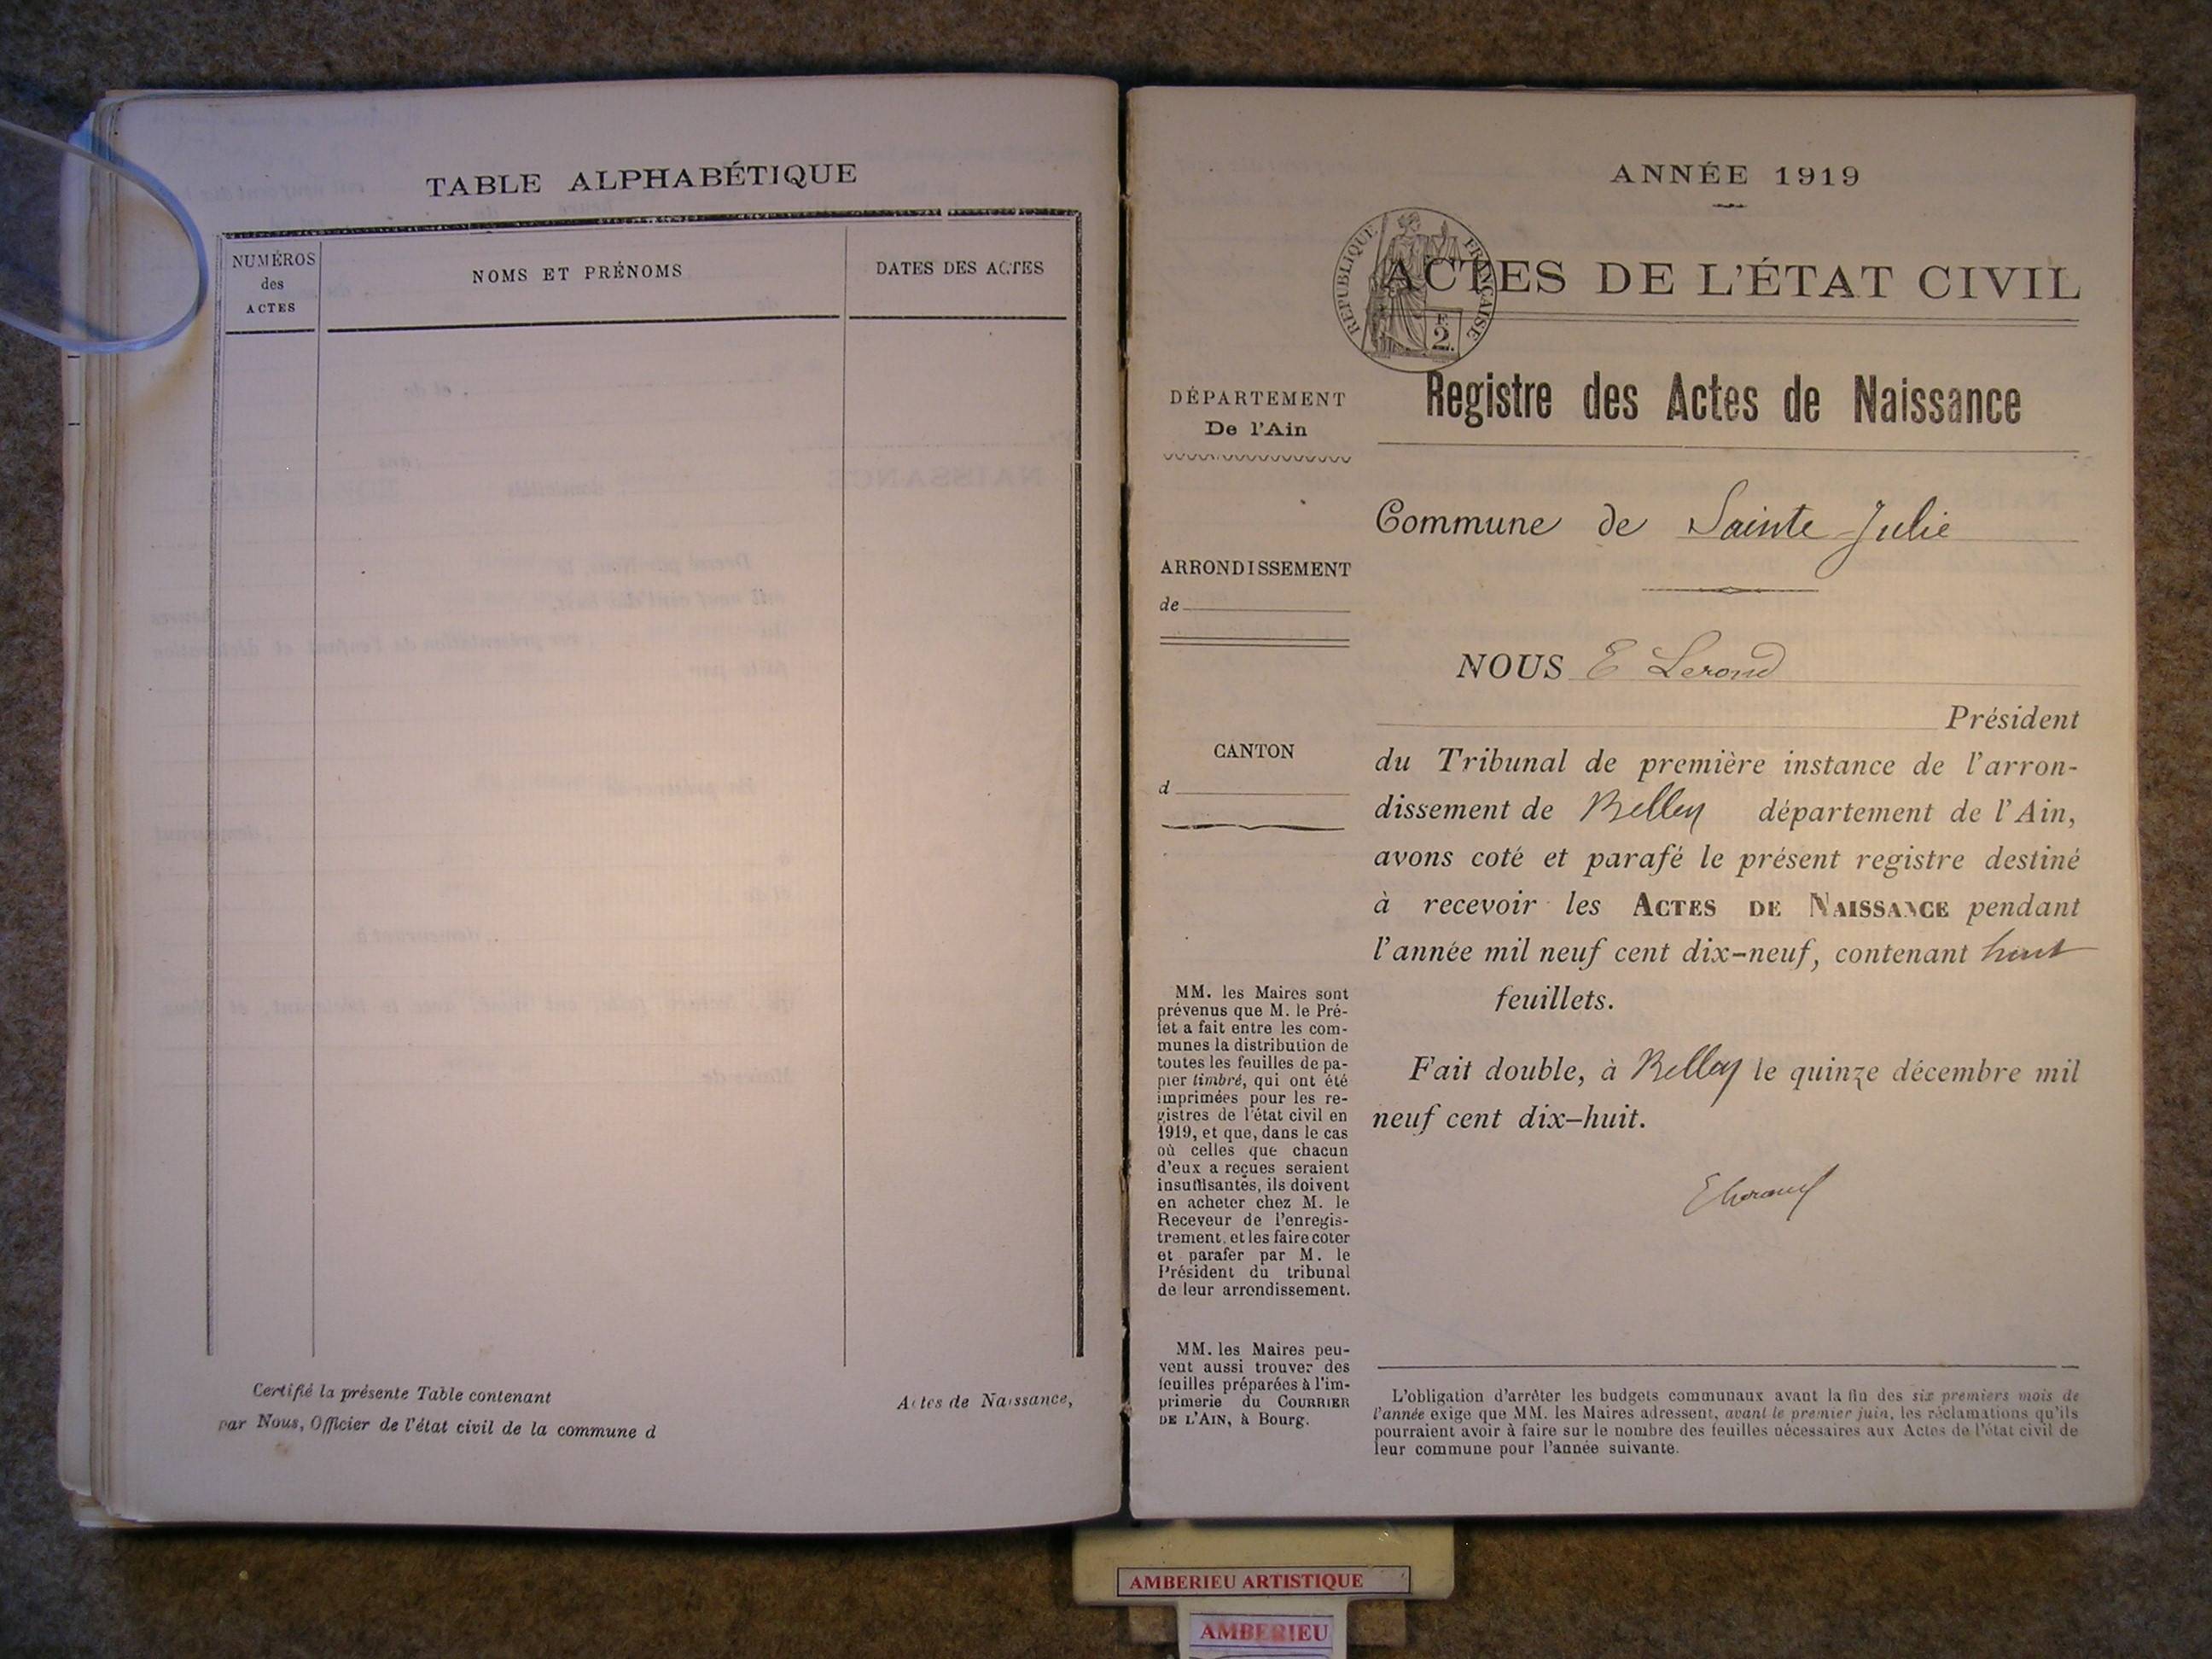 TABLE ALPHABÉTIQUE
NUMÉROS
des
ACTES
NOMS ET PRÉNOMS
DATES DES ACTES
Certifié la présente Table contenant
Actes de Naissance,
par Nous, Officier de l'état civil de la commune d
ANNÉE 1919
RÉPUBLIQUE FRANÇAISE
F.
2.
ACTES DE L'ÉTAT CIVIL
Registre des Actes de Naissance
DÉPARTEMENT
De l'Ain
ARRONDISSEMENT
de
CANTON
d
MM. les Maires sont
prévenus que M. le Pré-
fet a fait entre les com-
munes la distribution de
toutes les feuilles de pa-
pier timbré, qui ont été
imprimées pour les re-
gistres de l'état civil en
1919, et que, dans le cas
où celles que chacun
d'eux a reçues seraient
insuffisantes, ils doivent
en acheter chez M. le
Receveur de l'enregis-
trement, et les faire coter
et parafer par M. le
Président du tribunal
de leur arrondissement.
MM. les Maires peu-
vent aussi trouver des
feuilles préparées à l'im-
primerie du COURRIER
DE L'AIN, à Bourg.
Commune de Sainte Julie
NOUS E Lerond
Président
du Tribunal de première instance de l'arron-
dissement de Belley département de l'Ain,
avons coté et parafé le présent registre destiné
à recevoir les ACTES DE NAISSANCE pendant
l'année mil neuf cent dix-neuf, contenant huit
feuillets.
Fait double, à Belley le quinze décembre mil
neuf cent dix-huit.
L'obligation d'arrêter les budgets communaux avant la fin des six premiers mois de
l'année exige que MM. les Maires adressent, avant le premier juin, les réclamations qu'ils
pourraient avoir à faire sur le nombre des feuilles nécessaires aux Actes de l'état civil de
leur commune pour l'année suivante.
AMBERIEU ARTISTIQUE
AMBERIEU